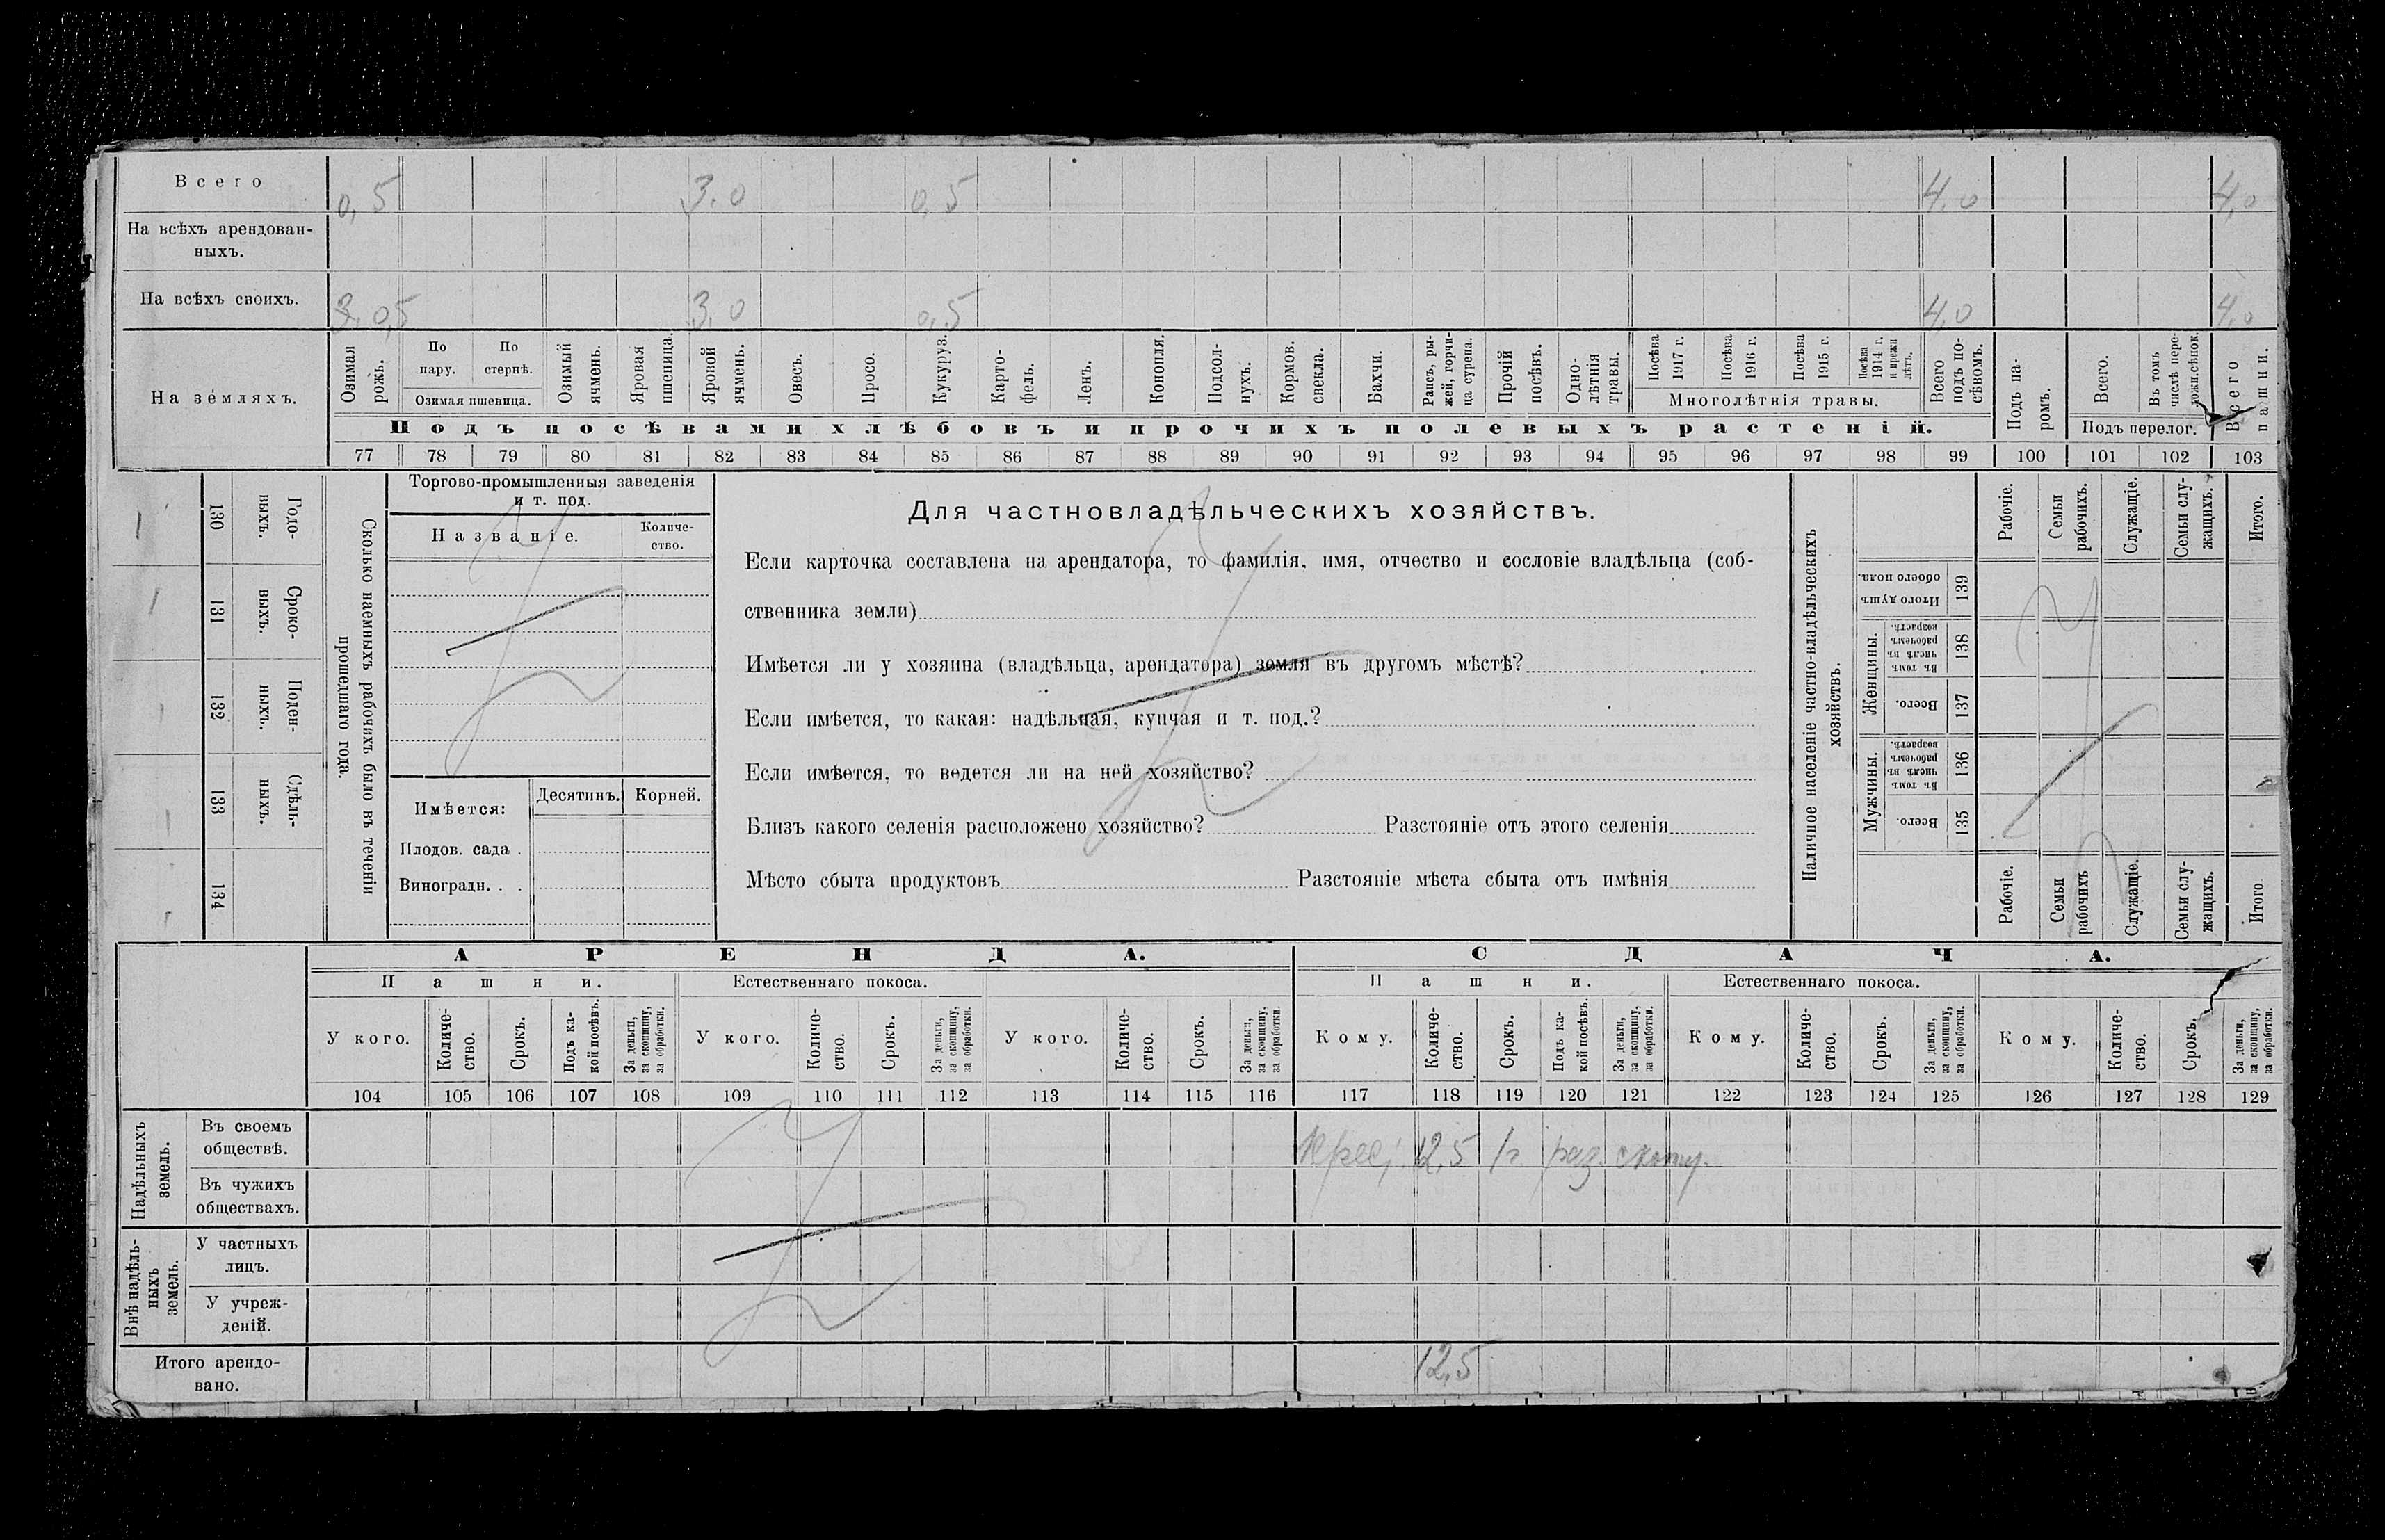 Всего 0,5 3.0 0,5 4,0 4,0
На всѣхъ арендован-
ныхъ.
На всѣхъ своихъ. 0,5 3,0 0,5 4,0 4,0
На земляхъ.
Озимая рожь.
По пару.
По стернѣ.
Озимая пшеница.
Озимый ячмень.
Яровая пшеница.
Яровой ячмень.
Овесъ.
Просо.
Кукуруз.
Карто-
фель.
Ленъ.
Конопля.
Подсол-
нухъ.
Кормов.
свекла.
Бахчи.
Рапсъ, ры-
жей, горчи-
ца сурепа.
Прочій
посѣвъ.
Одно-
лѣтнія
травы.
Посѣва
1917 г.
Посѣва
1916 г.
Посѣва
1915 г.
Посѣва
1914 г.
и прежн
лѣтъ.
Многолѣтнія травы.
Всего
подъ по-
сѣвомъ.
Подъ па-
ромъ.
Всего.
Въ томъ
числѣ пере-
Подъ перелог.
Всего
пашни.
Подъ посѣвами хлѣбовъ и прочихъ полевыхъ растеній.
77 78 79 80 81 82 83 84 85 86 87 88 89 90 91 92 93 94 95 96 97 98 99 100 101 102 103
130 Годо-
выхъ.
131 Сроко-
выхъ.
132 Поден-
ныхъ.
133 Сдѣль-
ныхъ.
134
Сколько наемныхъ рабочихъ было въ теченіи
прошедшаго года.
Торгово-промышленныя заведенія
и т. под.
Названіе.
Количе-
ство.
Имѣется:
Десятинъ. Корней.
Плодов. сада .
Виноградн. . .
Для частновладѣльческихъ хозяйствъ.
Если карточка составлена на арендатора, то фамилія, имя, отчество и сословіе владѣльца (соб-
ственника земли)
Имѣется ли у хозяина (владѣльца, арендатора) земля въ другомъ мѣстѣ?
Если имѣется, то какая: надѣльная, купчая и т. под.?
Если имѣется, то ведется ли на ней хозяйство?
Близъ какого селенія расположено хозяйство? Разстояніе отъ этого селенія
Мѣсто сбыта продуктовъ Разстояніе мѣста сбыта отъ имѣнія
Наличное населеніе частно-владѣльческихъ
хозяйствъ.
Рабочіе.
Семьи
рабочихъ.
Служащіе.
Семьи слу-
жащихъ.
Итого.
Итого душъ
обоего пола.
139
Женщины.
Въ томъ
числѣ въ
рабочемъ
возрастѣ.
138
Всего.
137
Мужчины.
Въ томъ
числѣ въ
рабочемъ
возрастѣ.
136
Всего.
135
Рабочіе.
Семьи
рабочихъ
Служащіе.
Семьи слу-
жащихъ.
Итого.
АРЕНДА. СДАЧА.
Пашни. Естественнаго покоса. Пашни. Естественнаго покоса.
У кого.
Количе-
ство.
Срокъ.
Подъ ка-
кой посѣвъ.
За деньги,
за скопщину,
за обработки.
У кого.
Количе-
ство.
Срокъ.
За деньги,
за скопщину,
за обработки.
У кого.
Количе-
ство.
Срокъ.
За деньги,
за скопщину,
за обработки.
Кому.
Количе-
ство.
Срокъ.
Подъ ка-
кой посѣвъ.
За деньги,
за скопщину,
за обработки.
Кому.
Количе-
ство.
Срокъ.
За деньги,
за скопщину,
за обработки.
Кому.
Количе-
ство.
Срокъ.
За деньги,
за скопщину,
за обработки.
104 105 106 107 108 109 110 111 112 113 114 115 116 117 118 119 120 121 122 123 124 125 126 127 128 129
Надѣльныхъ
земель.
Въ своемъ
обществѣ. 12,5 1г раз.
Въ чужихъ
обществахъ.
Внѣ надѣль-
ныхъ
земель.
У частныхъ
лицъ.
У учреж-
деній.
Итого арендо-
вано. 12,5